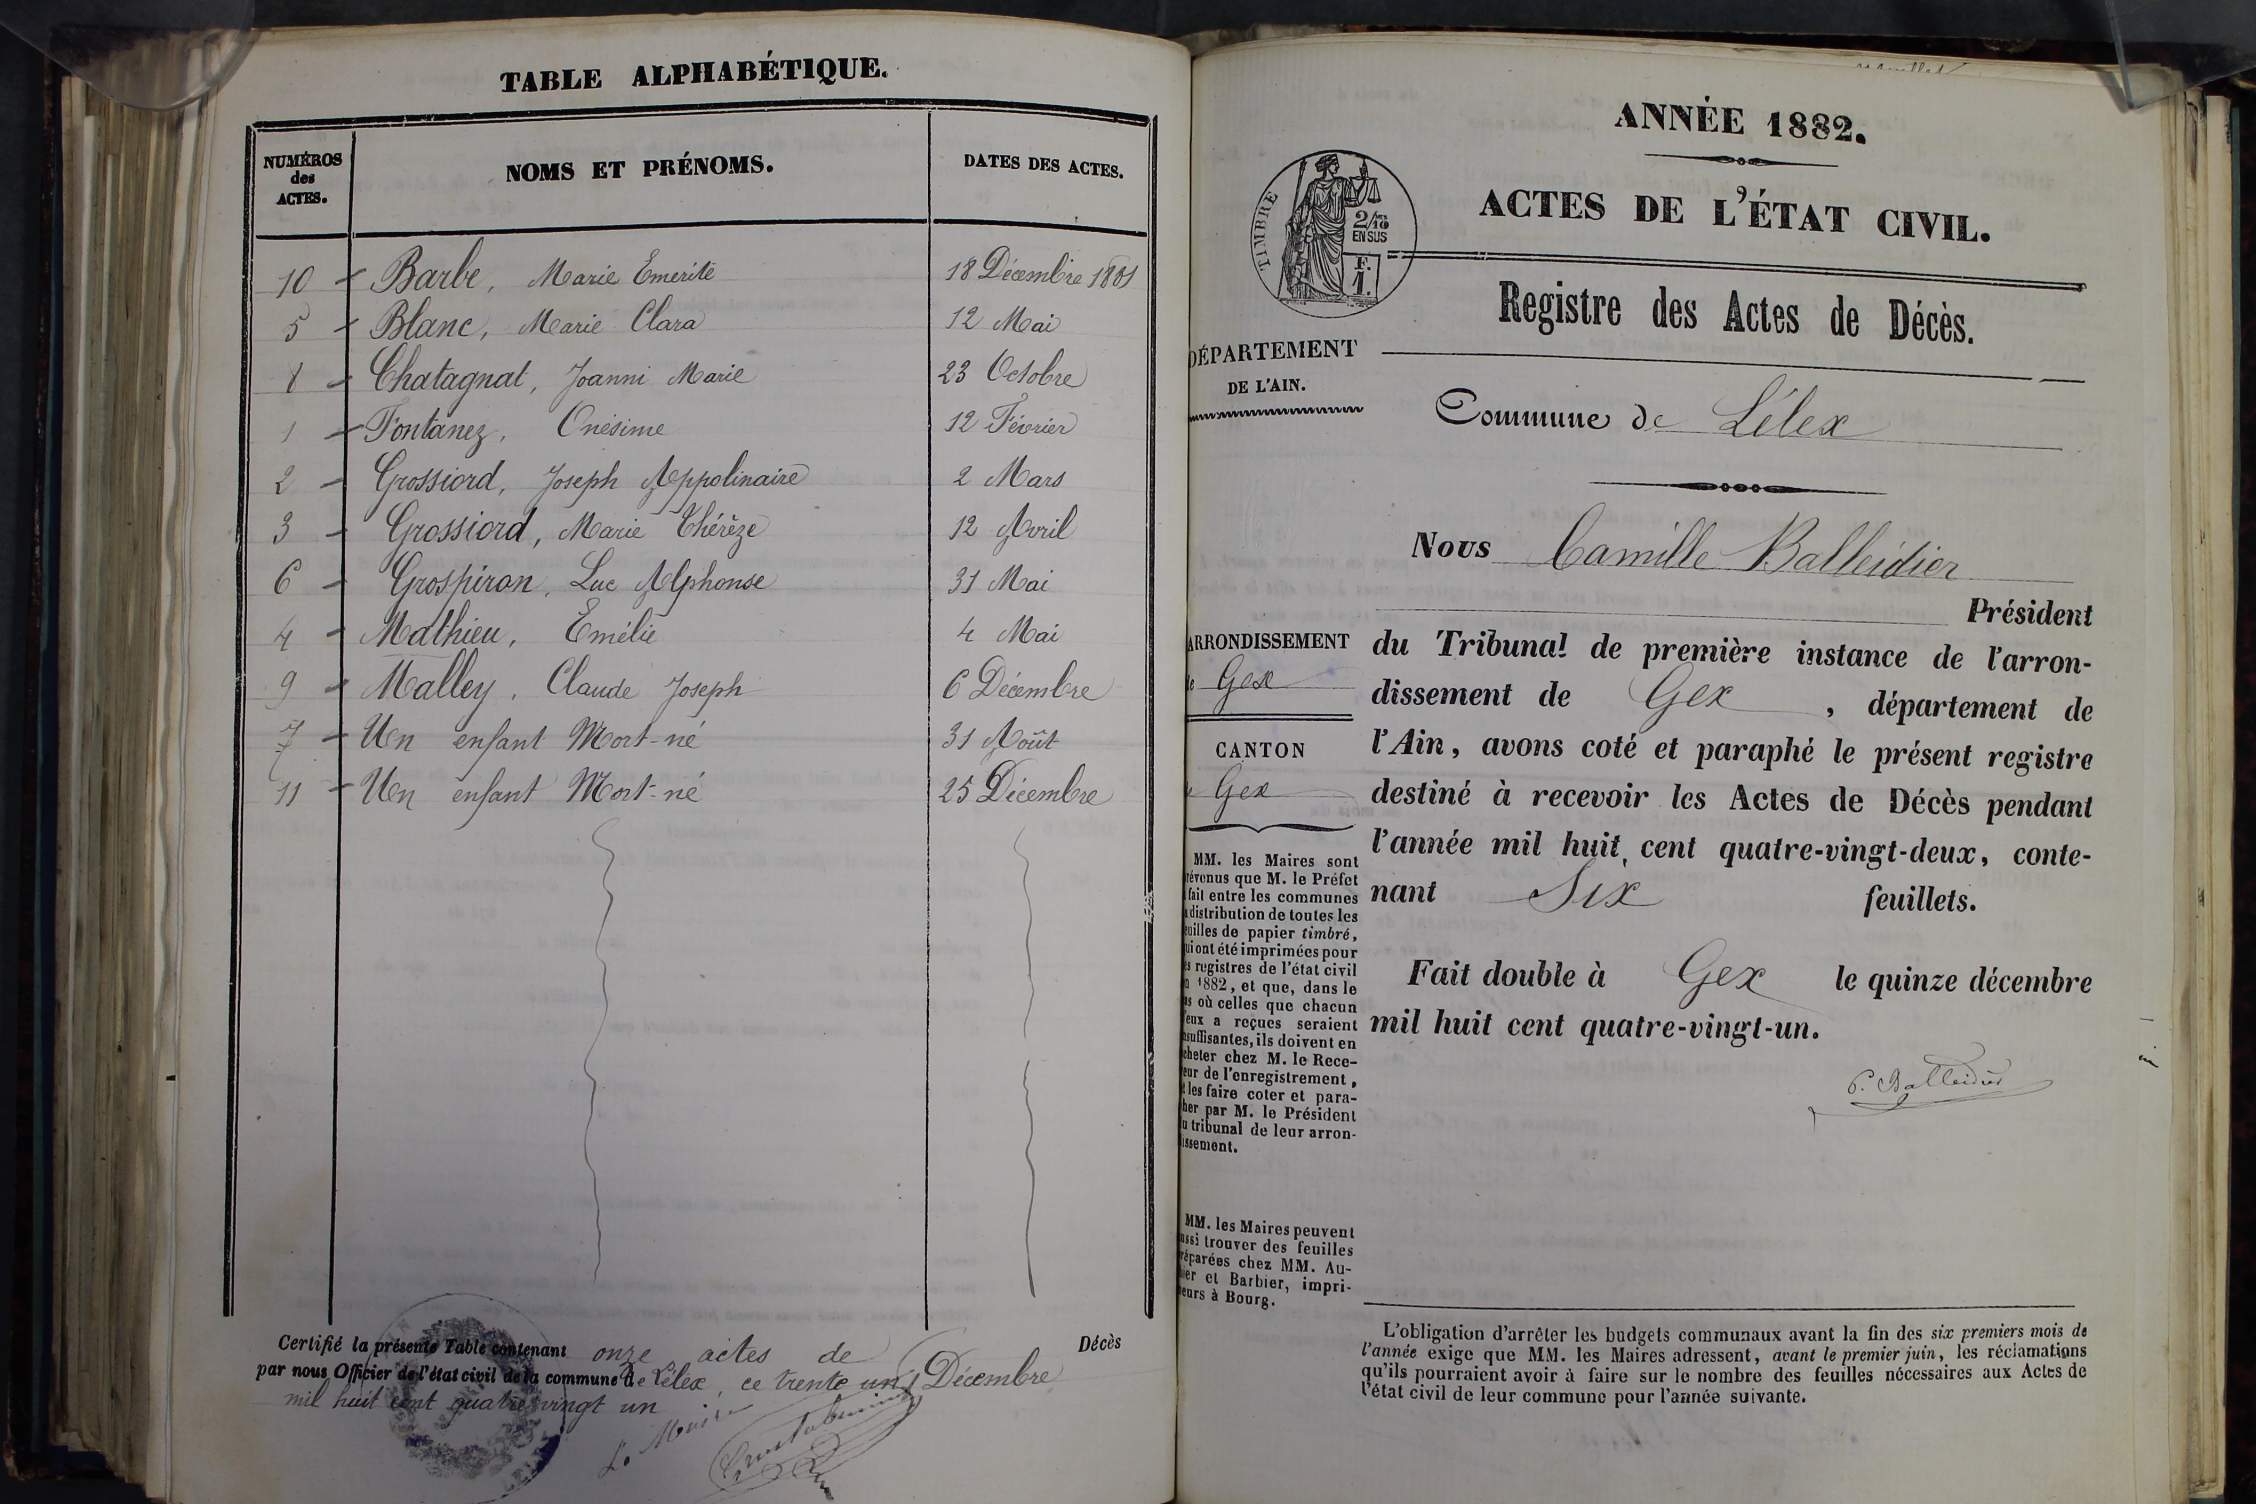 TABLE ALPHABÉTIQUE.
NUMÉROS
des
ACTES.
NOMS ET PRÉNOMS.
DATES DES ACTES.
10 - Barbe, Marie Emerite 18 Décembre 1881
5 - Blanc, Marie Clara 12 Mai
8 - Chatagnat, Joanni Marie 23 Octobre
1 - Fontanez, Onésime 12 Février
2 - Grossiord, Joseph Appolinaire 2 Mars
3 - Grossiord, Marie Thérèze 12 Avril
6 - Grospiron, Luc Alphonse 31 Mai
4 - Mathieu, Emélie 4 Mai
9 - Malley, Claude Joseph 6 Décembre
7 - Un enfant Mort-né 31 Août
11 - Un enfant Mort-né 25 Décembre
Certifié la présente Table contenant onze actes de Décès
par nous Officier de l'état civil de la commune de Lélex, ce trente un Décembre
mil huit cent quatre vingt un
Le Maire
ANNÉE 1882.
ACTES DE L'ÉTAT CIVIL.
TIMBRE
2/10
EN SUS
F.
1.
Registre des Actes de Décès.
DÉPARTEMENT
DE L'AIN.
Commune de Lélex
Nous Camille Balleidier
Président
du Tribunal de première instance de l'arron-
dissement de Gex, département de
l'Ain, avons coté et paraphé le présent registre
destiné à recevoir les Actes de Décès pendant
l'année mil huit cent quatre-vingt-deux, conte-
nant Six feuillets.
Fait double à Gex le quinze décembre
mil huit cent quatre-vingt-un.
C. Balleidier
ARRONDISSEMENT
de Gex
CANTON
de Gex
MM. les Maires sont
révenus que M. le Préfet
fait entre les communes
a distribution de toutes les
euilles de papier timbré,
ui ont été imprimées pour
es registres de l'état civil
n 1882, et que, dans le
as où celles que chacun
'eux a reçues seraient
nsuffisantes, ils doivent en
cheter chez M. le Rece-
eur de l'enregistrement,
t les faire coter et para-
her par M. le Président
u tribunal de leur arron-
issement.
MM. les Maires peuvent
ussi trouver des feuilles
réparées chez MM. Au-
ier et Barbier, impri-
eurs à Bourg.
L'obligation d'arrêter les budgets communaux avant la fin des six premiers mois de
l'année exige que MM. les Maires adressent, avant le premier juin, les réclamations
qu'ils pourraient avoir à faire sur le nombre des feuilles nécessaires aux Actes de
l'état civil de leur commune pour l'année suivante.